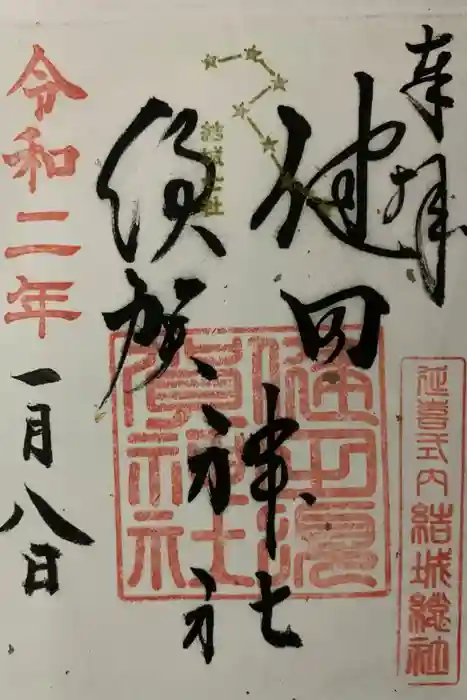 奉拝
延喜式内結城総社
健田
須賀
神社
結城七社
健田須賀神社
令和二年
一月八日